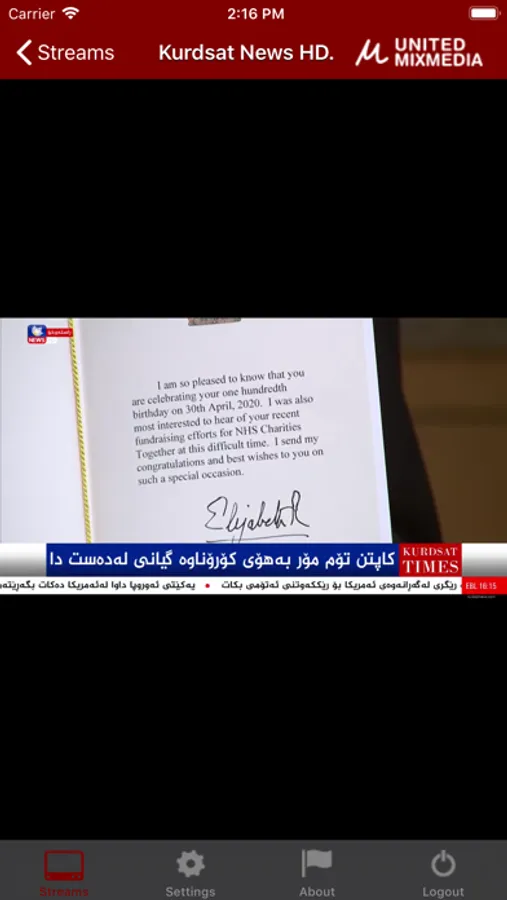 Carrier 2:16 PM
Streams
Kurdsat News HD.
UNITED
MIXMEDIA
NEWS
I am so pleased to know that you
are celebrating your one hundredth
birthday on 30th April, 2020. I was also
most interested to hear of your recent
fundraising efforts for NHS Charities
Together at this difficult time. I send my
congratulations and best wishes to you on
such a special occasion.
Elizabeth R
کاپتن تۆم مۆر بەهۆی کۆرۆناوە گیانی لەدەست دا
KURDSAT
TIMES
ڕێگری لەگەڕانەوەی ئەمریکا بۆ ڕێککەوتنی ئەتۆمی بکات • یەکێتی ئەوروپا داوا لەئەمریکا دەکات
EBL 16:15
Streams
Settings
About
Logout